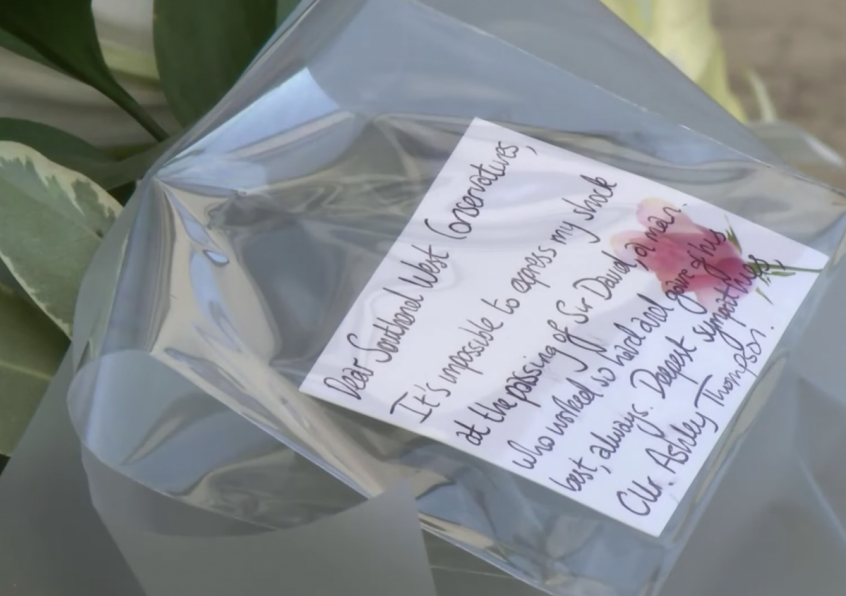 Dear Southend West Conservatives,
It's impossible to express my shock
at the passing of Sir David, a man
who worked so hard and gave of his
best, always. Deepest sympathies,
Cllr. Ashley Thompson.